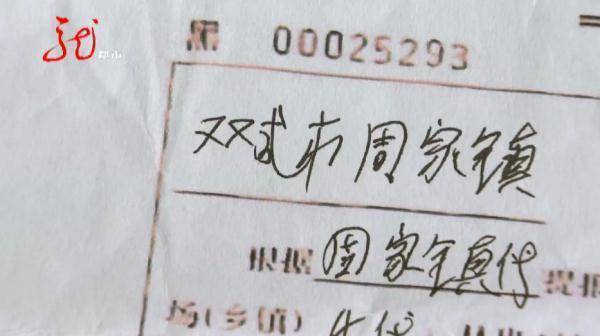 黑 00025293
双城市周家镇
根据 周家镇 提报
场(乡镇)